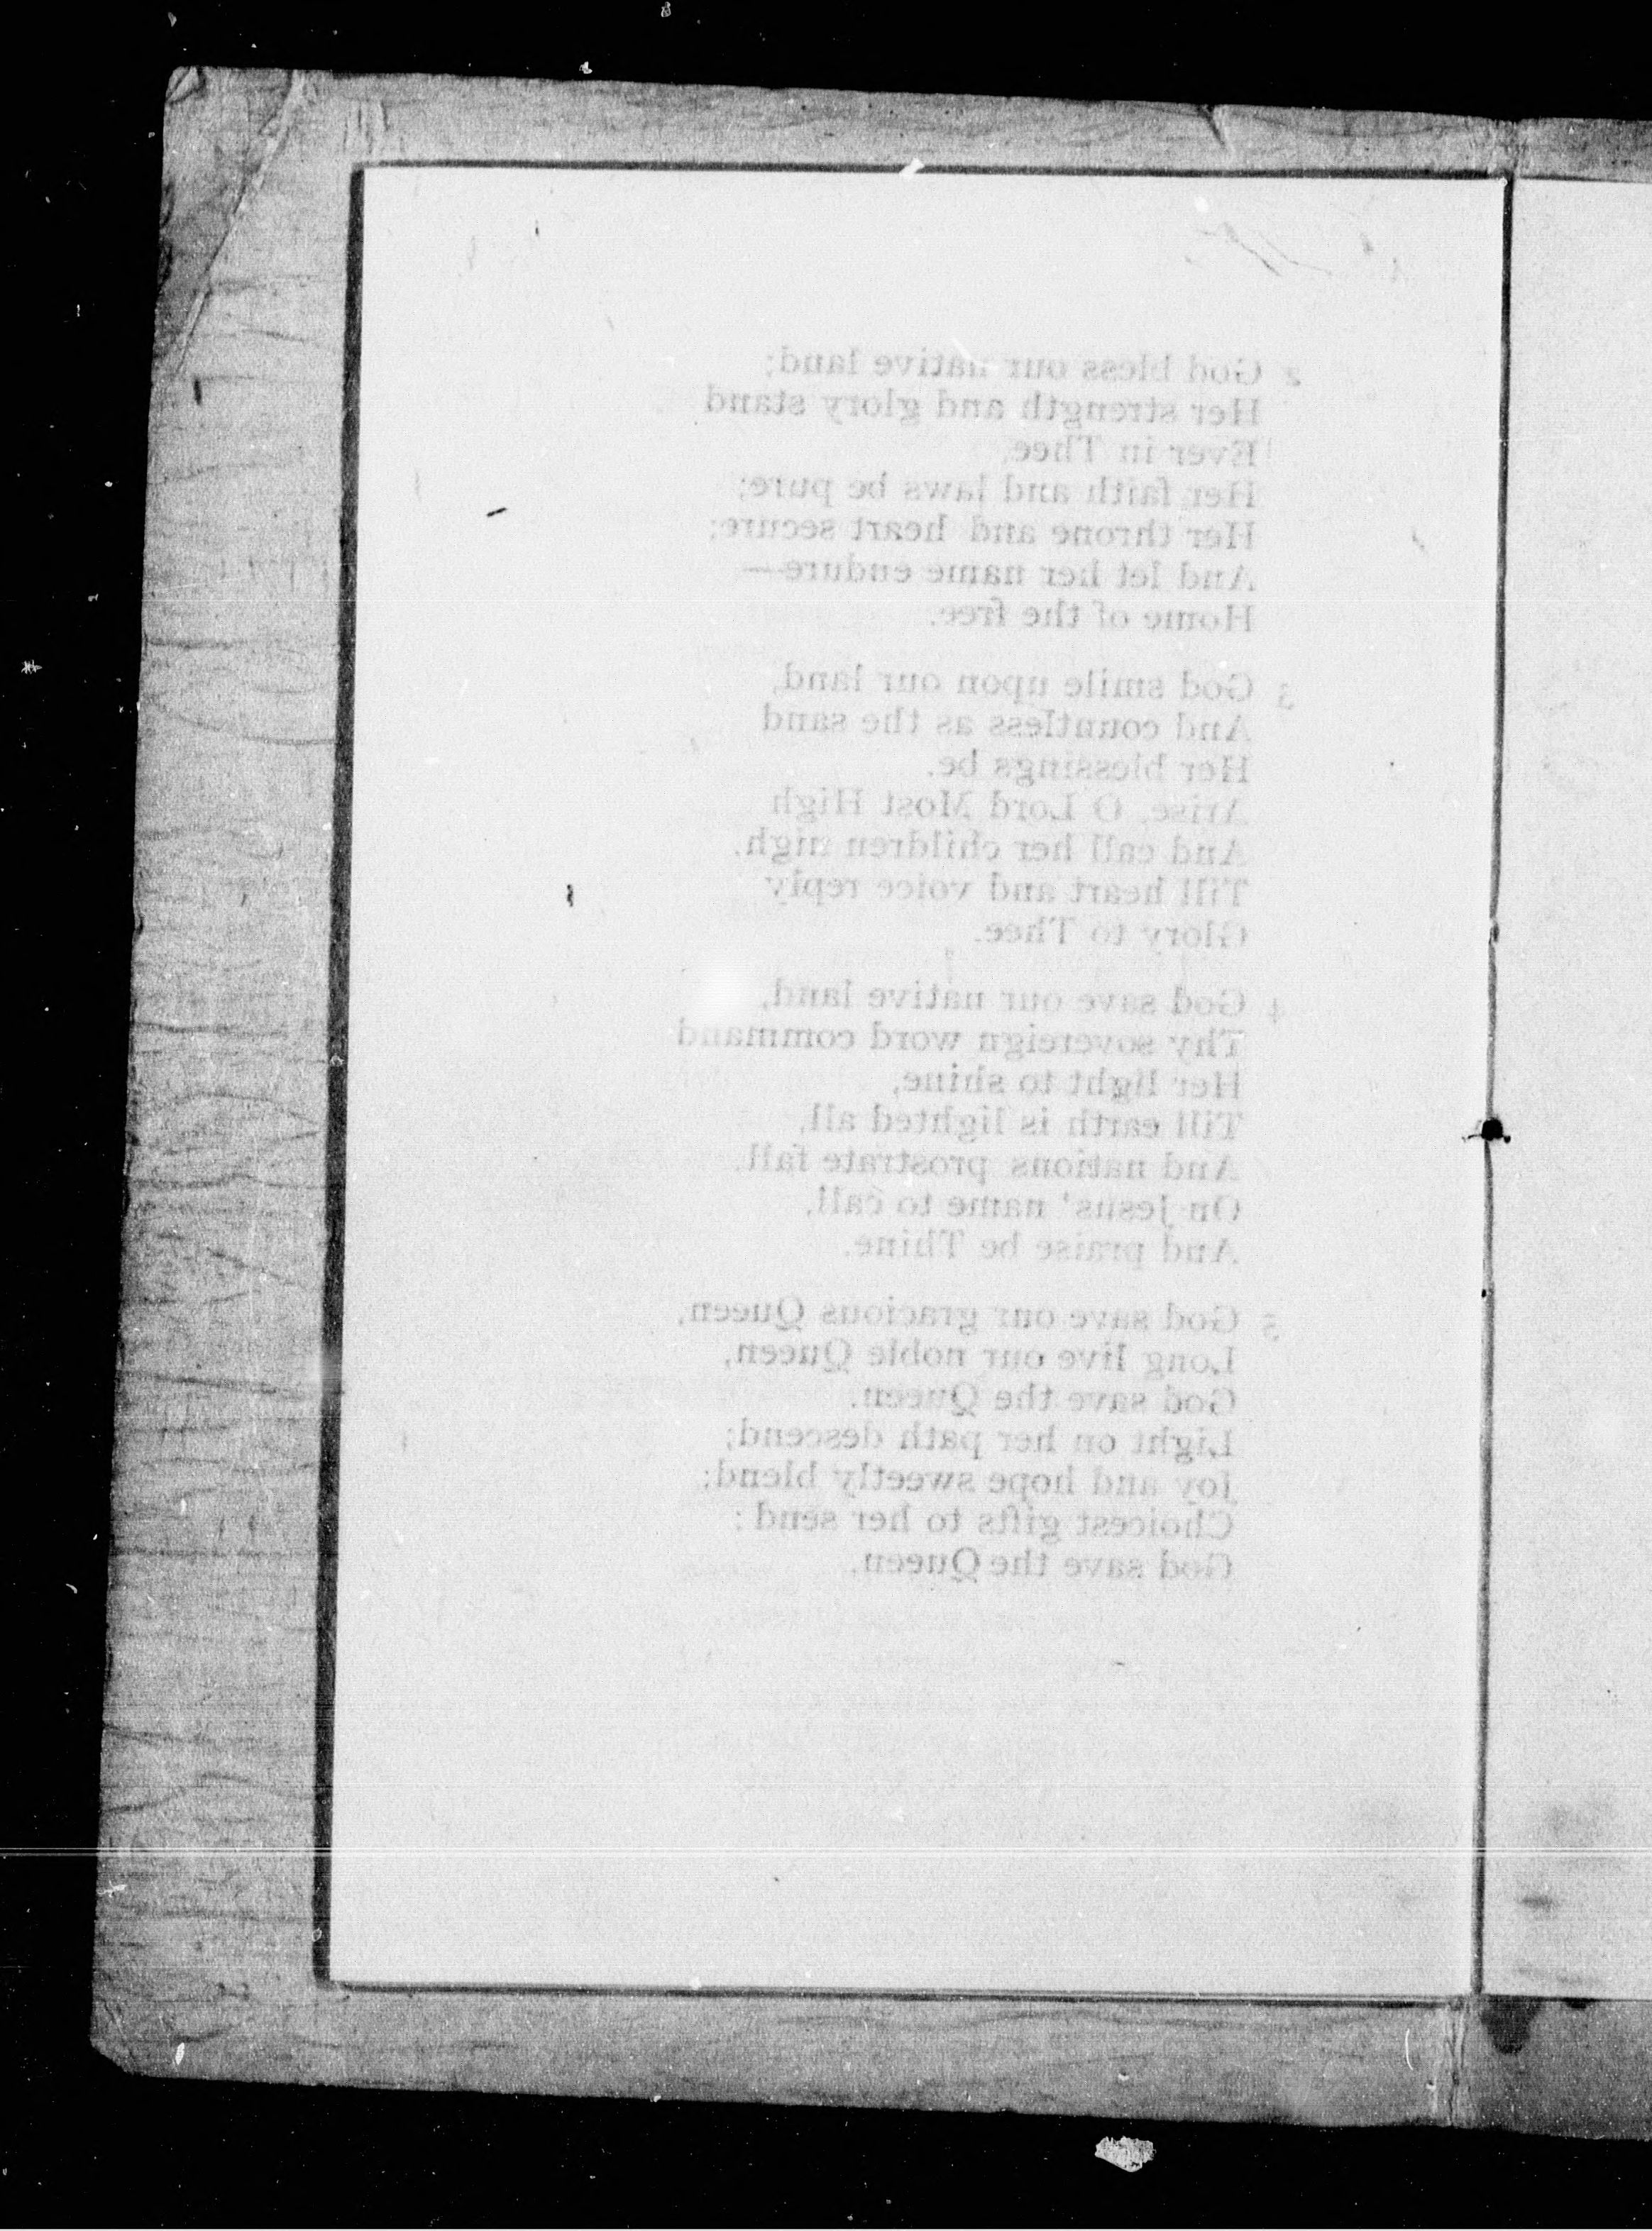 2 God bless our native land;
Her strength and glory stand
Ever in Thee,
Her faith and laws be pure;
Her throne and heart secure;
And let her name endure—
Home of the free.
3 God smile upon our land,
And countless as the sand
Her blessings be.
Arise, O Lord Most High
And call her children nigh,
Till heart and voice reply
Glory to Thee.
4 God save our native land,
Thy sovereign word command
Her light to shine,
Till earth is lighted all,
And nations prostrate fall,
On Jesus' name to call,
And praise be Thine.
5 God save our gracious Queen,
Long live our noble Queen,
God save the Queen.
Light on her path descend;
Joy and hope sweetly blend;
Choicest gifts to her send:
God save the Queen.